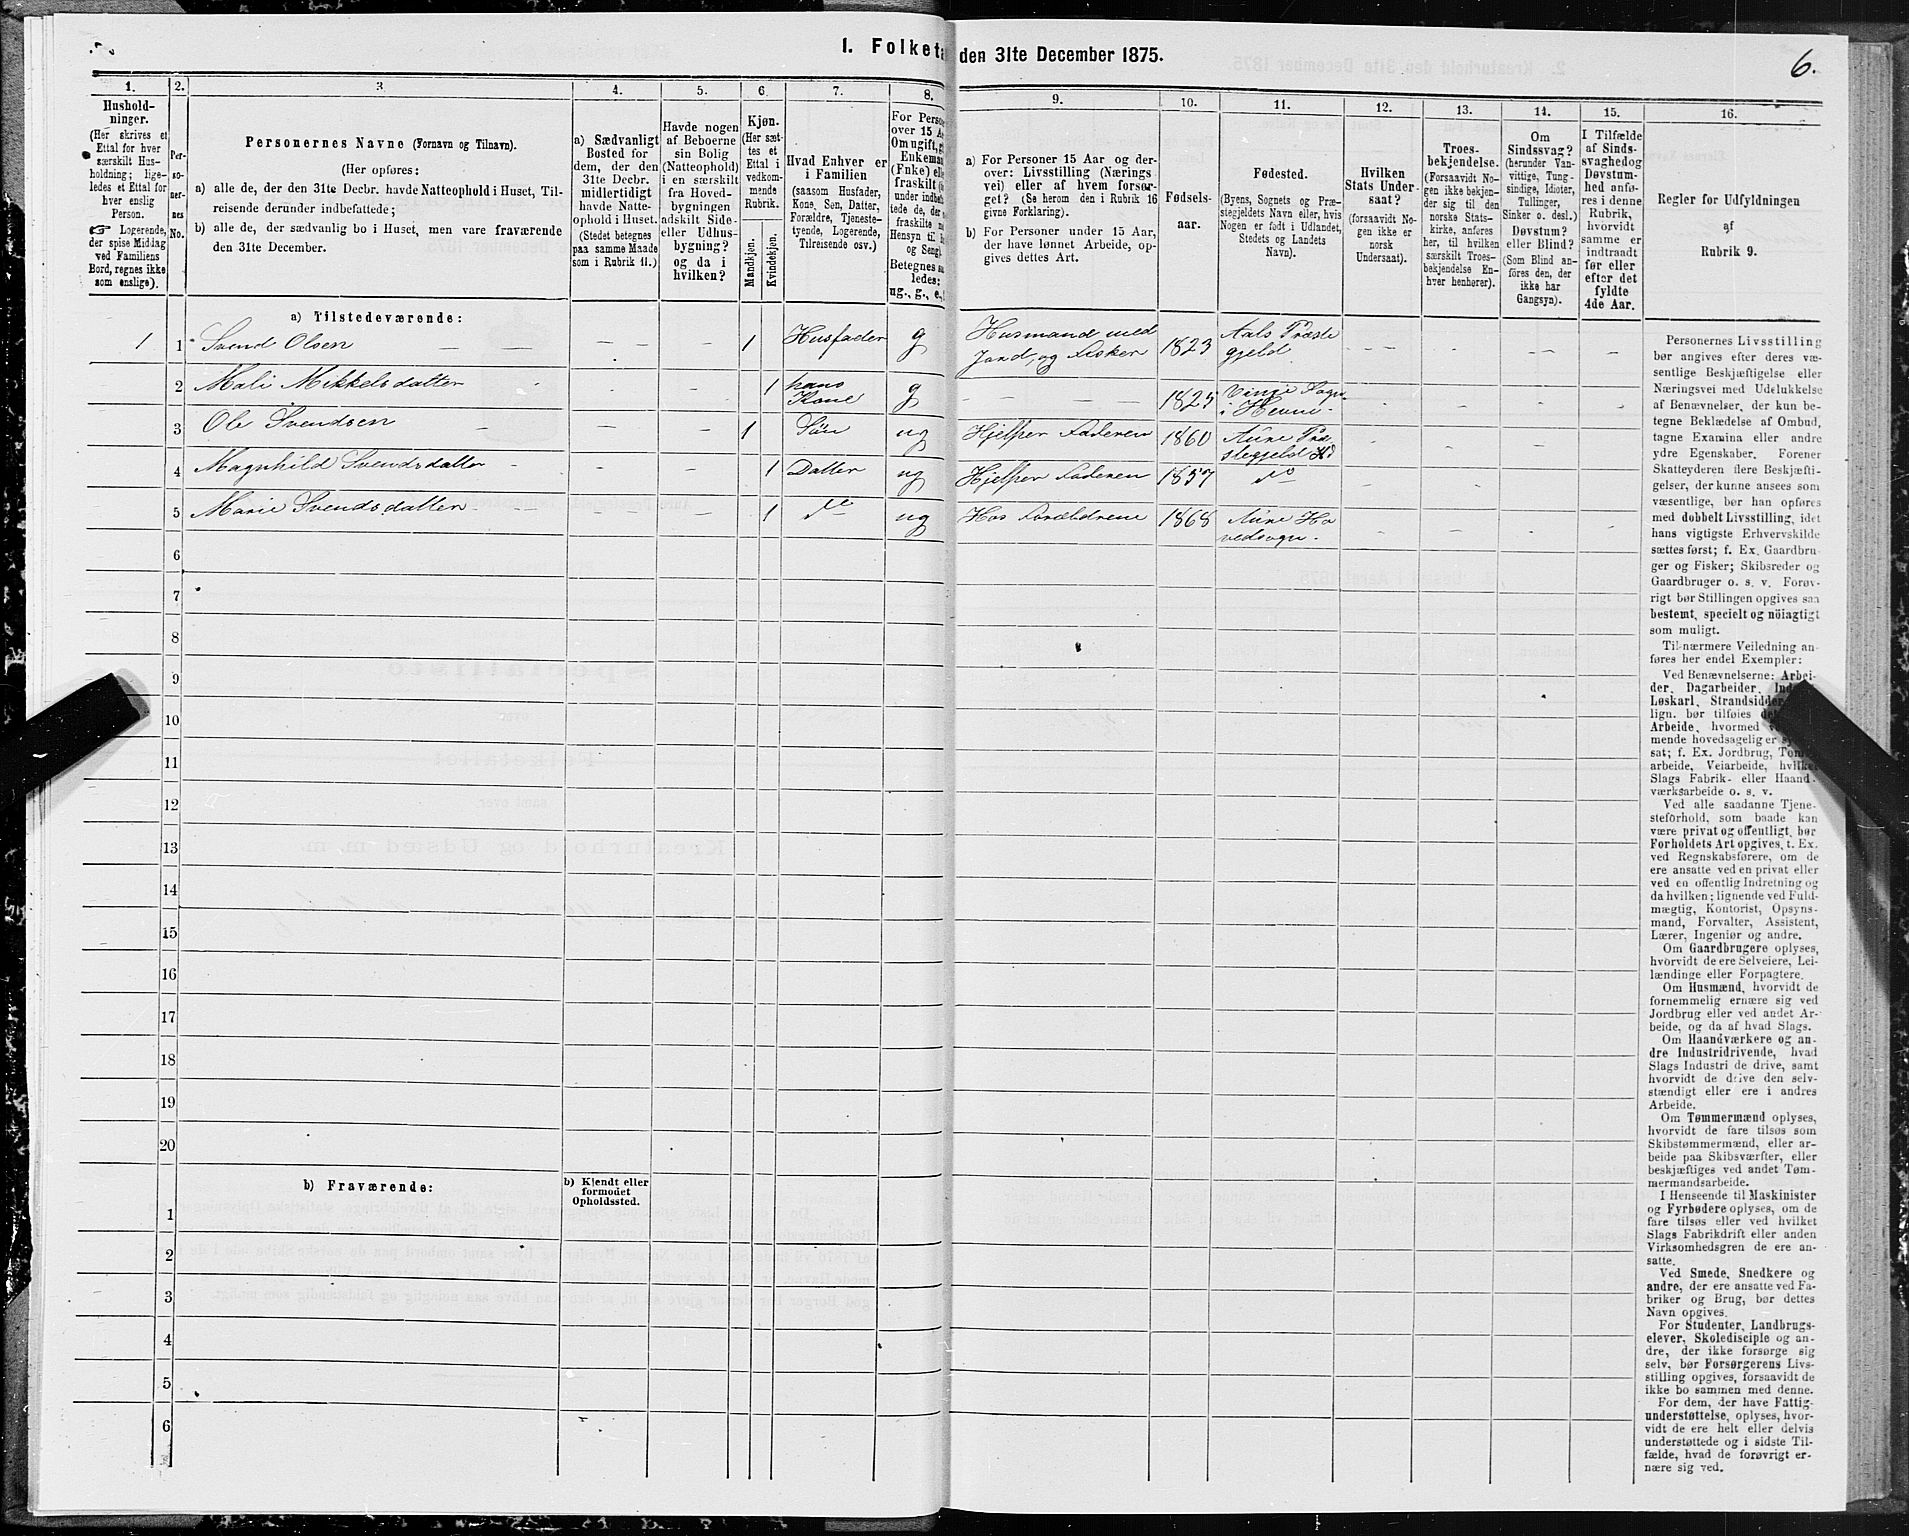 I. Folketa den 31te December 1875.
6.
1.
2.
3
4.
5.
6.
7.
8.
9.
10.
11.
12.
13.
14.
15.
16.
Hushold-
ninger.
(Her skrives et
Ettal for hver
særskilt Hus-
holdning; lige-
ledes et Ettal for
hver enslig
Person.
☞ Logerende,
der spise Middag
ved Familiens
Bord, regnes ikke
som enslige).
Per-
so-
ner-
nes
No.
Personernes Navne (Fornavn og Tilnavn).
(Her opføres:
a) alle de, der den 31te Decbr. havde Natteophold i Huset, Til-
reisende derunder indbefattede;
b) alle de, der sædvanlig bo i Huset, men vare fraværende
den 31te December.
a) Sædvanligt
Bosted for
dem, der den
31te Decbr.
midlertidigt
havde Natte-
ophold i Huset.
(Stedet betegnes
paa samme Maade
som i Rubrik 11.)
Havde nogen
af Beboerne
sin Bolig
(Natteophold)
i en særskilt
fra Hoved-
bygningen
adskilt Side-
eller Udhus-
bygning?
og da i
hvilken?
Kjøn.
(Her sæt-
tes et
Ettal i
vedkom-
mende
Rubrik.
Mandkjøn.
Kvindekjøn.
Hvad Enhver er
i Familien
(saasom Husfader,
Kone, Søn, Datter,
Forældre, Tjeneste-
tyende, Logerende,
Tilreisende osv.)
For Perso
over 15 A
Om ugift, g
Enkeman
(Enke) elle
fraskilt (
under indbefa
tede de, der
fraskilte
Hensyn til
og Seng)
Betegnes sa
ledes:
ug., g., e.,
a) For Personer 15 Aar og der-
over: Livsstilling (Nærings
vei) eller af hvem forsør-
get? (Se herom den i Rubrik 16
givne Forklaring).
b) For Personer under 15 Aar,
der have lønnet Arbeide, op-
gives dettes Art.
Fødsels-
aar.
Fødested.
(Byens, Sognets og Præ-
stegjeldets Navn eller, hvis
Nogen er født i Udlandet,
Stedets og Landets
Navn).
Hvilken
Stats Under-
saat?
(forsaavidt No-
gen ikke er
norsk
Undersaat).
Troes-
bekjendelse.
(Forsaavidt No-
gen ikke bekjen-
der sig til den
norske Stats-
kirke, anføres
her, til hvilken
særskilt Troes-
bekjendelse En-
hver henhører).
Om
Sindssvag?
(herunder Van-
vittige, Tung-
sindige, Idioter,
Tullinger,
Sinker o. desl.)
Døvstum?
eller Blind?
(Som Blind an-
føres den, der
ikke har
Gangsyn).
I Tilfælde
af Sinds-
svaghed og
Døvstum-
hed anfø-
res i denne
Rubrik,
hvorvidt
samme er
indtraadt
før eller
efter det
fyldte
4de Aar.
Regler for Udfyldningen
af
Rubrik 9.
a) Tilstedeværende:
1 1 Svend Olsen — — — — 1 Husfader g Husmand med Jord, og Fisker 1823 Aals Præste gjeld — — — —
2 Mali Mikkelsdatter - - - 1 hans Kone g — — — 1825 Vinje Sogn i Hevne - - - - -
3 Ole Svendsen - - - 1 Søn ug Hjelper Faderen 1860 Aure Præ stegjeld Hd - - - -
4 Magnhild Svendsdatter - - - 1 Datter ug Hjelper Faderen 1857 do - - - -
5 Marie Svendsdatter - - - 1 do ug Hos Forældrene 1868 Aure Ho vedsogn - - - - -
6
7
8
9
10
11
12
13
14
15
16
17
18
19
20
b) Fraværende:
b) Kjendt eller
formodet
Opholdssted.
1
2
3
4
5
6
Personernes Livsstilling
bør angives efter deres væ-
sentlige Beskjæftigelse eller
Næringsvei med Udelukkelse
af Benævnelser, der kun be-
tegne Beklædelse af Ombud,
tagne Examina eller andre
ydre Egenskaber. Forener
Skatteyderen flere Beskjæfti-
gelser, der kunne ansees som
væsentlige, bør han opføres
med dobbelt Livsstilling, idet
hans vigtigste Erhvervskilde
sættes først; f. Ex. Gaardbru-
ger og Fisker; Skibsreder og
Gaardbruger o. s. v. Forøv-
rigt bør Stillingen opgives saa
bestemt, specielt og nöiagtigt
som muligt.
Til nærmere Veiledning an-
føres her endel Exempler:
Ved Benævnelserne: Arbei-
der, Dagarbeider, In
Løskarl, Strandsidder
lign. bør tilføies de
Arbeide, hvormed
mende hovedsagelig er
sat; f. Ex. Jordbrug, Tøm
arbeide, Veiarbeide, hvilket
Slags Fabrik- eller Haand-
værksarbeide o. s. v.
Ved alle saadanne Tjene-
steforhold, som baade kan
være privat og offentligt, bør
Forholdets Art opgives, t. Ex.
ved Regnskabsførere, om de
ere ansatte ved en privat eller
ved en offentlig Indretning og
da hvilken; lignende ved Fuld-
mægtig, Kontorist, Opsyns-
mand, Forvalter, Assistent,
Lærer, Ingeniør og andre.
Om Gaardbrugere oplyses,
hvorvidt de ere Selveiere, Lei-
lændinge eller Forpagtere.
Om Husmænd, hvorvidt de
fornemmelig ernære sig ved
Jordbrug eller ved andet Ar-
beide, og da af hvad Slags.
Om Haandværkere og an-
dre Industridrivende, hvad
Slags Industri de drive, samt
hvorvidt de drive den selv-
stændigt eller ere i andres
Arbeide.
Om Tømmermænd oplyses,
hvorvidt de fare tilsøs som
Skibstømmermænd, eller ar-
beide paa Skibsværfter, eller
beskjæftiges ved andet Tøm-
mermandsarbeide.
I Henseende til Maskinister
og Fyrbødere oplyses, om de
fare tilsøs eller ved hvilket
Slags Fabrikdrift eller anden
Virksomhedsgren de ere an-
satte.
Ved Smede, Snedkere og
andre, der ere ansatte ved Fa-
briker og Brug, bør dettes
Navn opgives.
For Studenter, Landbrugs-
elever, Skoledisciple og an-
dre, der ikke forsørge sig
selv, bør Forsørgerens Livs-
stilling opgives, forsaavidt de
ikke bo sammen med denne.
For dem, der have Fattig-
understøttelse, oplyses, hvor-
vidt de ere helt eller delvis
understøttede og i sidste Til-
fælde, hvad de forøvrigt er-
nære sig ved.